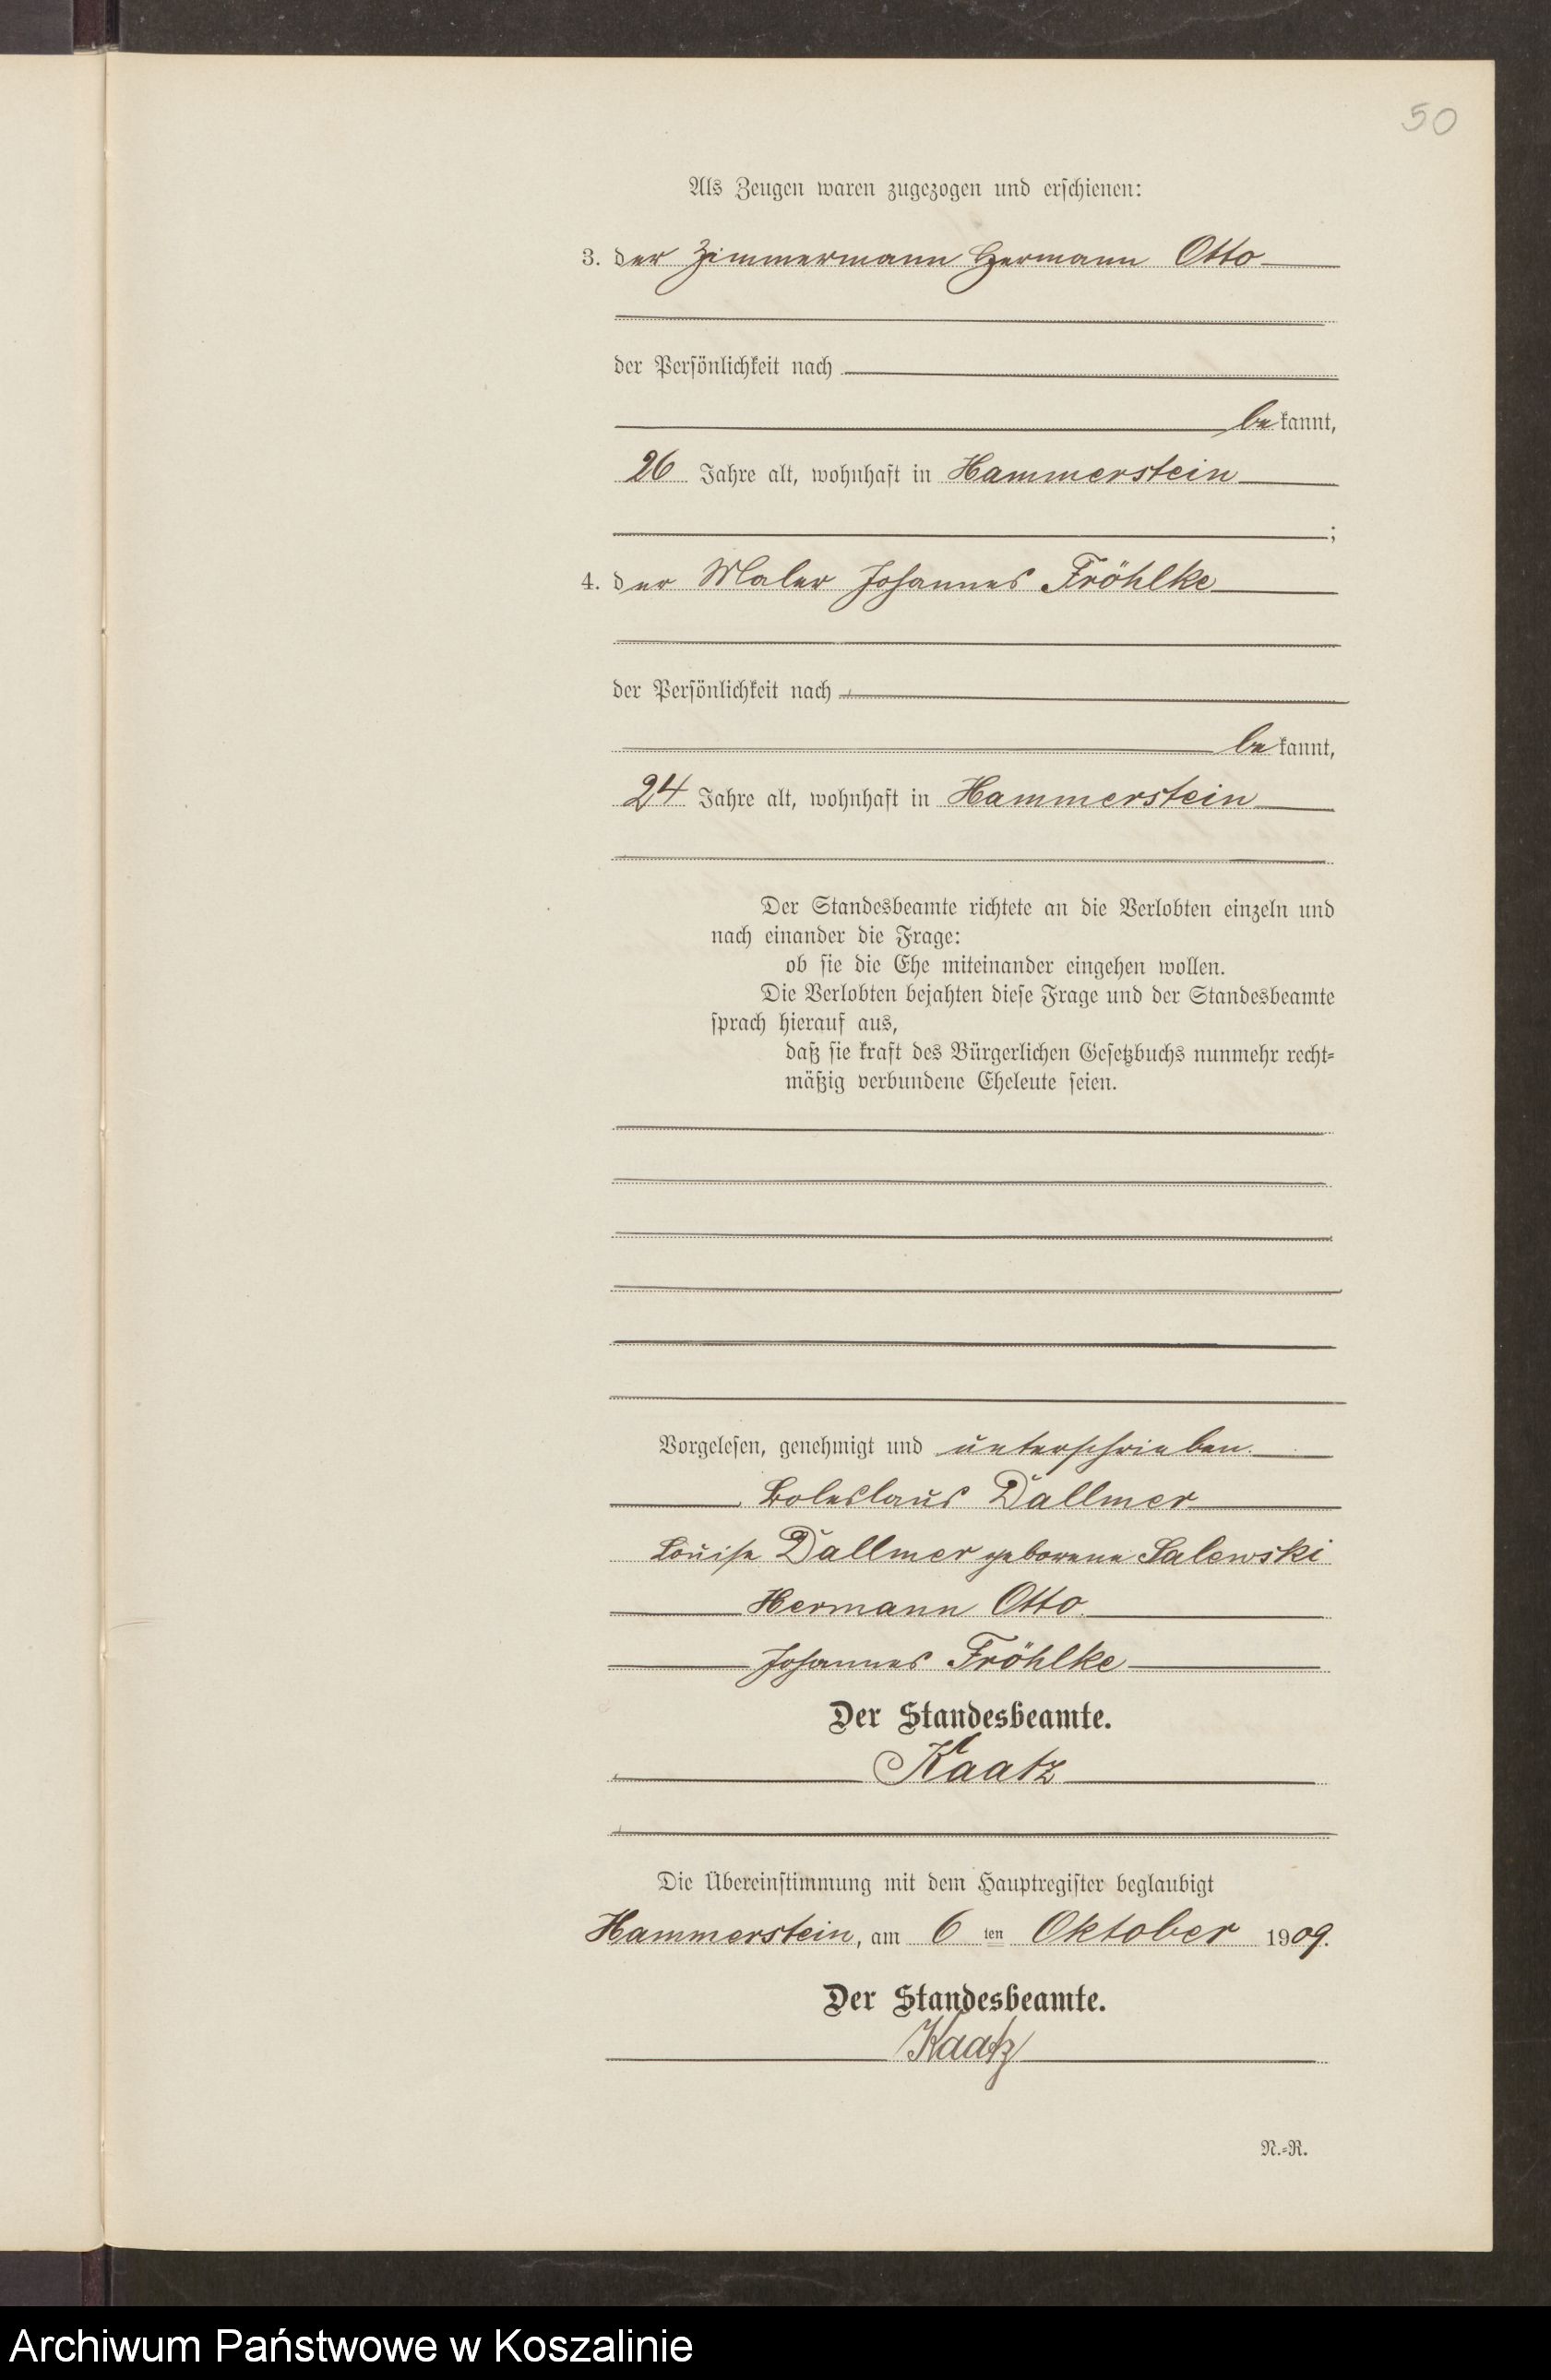 50
Als Zeugen waren zugezogen und erschienen:
3. der Zimmermann Hermann Otto
der Persönlichkeit nach
bekannt,
26 Jahre alt, wohnhaft in Hammerstein
;
4. der Maler Johannes Fröhlke
der Persönlichkeit nach
bekannt,
24 Jahre alt, wohnhaft in Hammerstein
Der Standesbeamte richtete an die Verlobten einzeln und
nach einander die Frage:
ob sie die Ehe miteinander eingehen wollen.
Die Verlobten bejahten diese Frage und der Standesbeamte
sprach hierauf aus,
daß sie kraft des Bürgerlichen Gesetzbuchs nunmehr recht-
mäßig verbundene Eheleute seien.
Vorgelesen, genehmigt und unterschrieben.
Boleslaus Dallmer
Louise Dallmer geborene Salewski
Hermann Otto
Johannes Fröhlke
Der Standesbeamte.
Kaatz
Die Übereinstimmung mit dem Hauptregister beglaubigt
Hammerstein, am 6 ten Oktober 1909.
Der Standesbeamte.
Kaatz
N.-R.
Archiwum Państwowe w Koszalinie